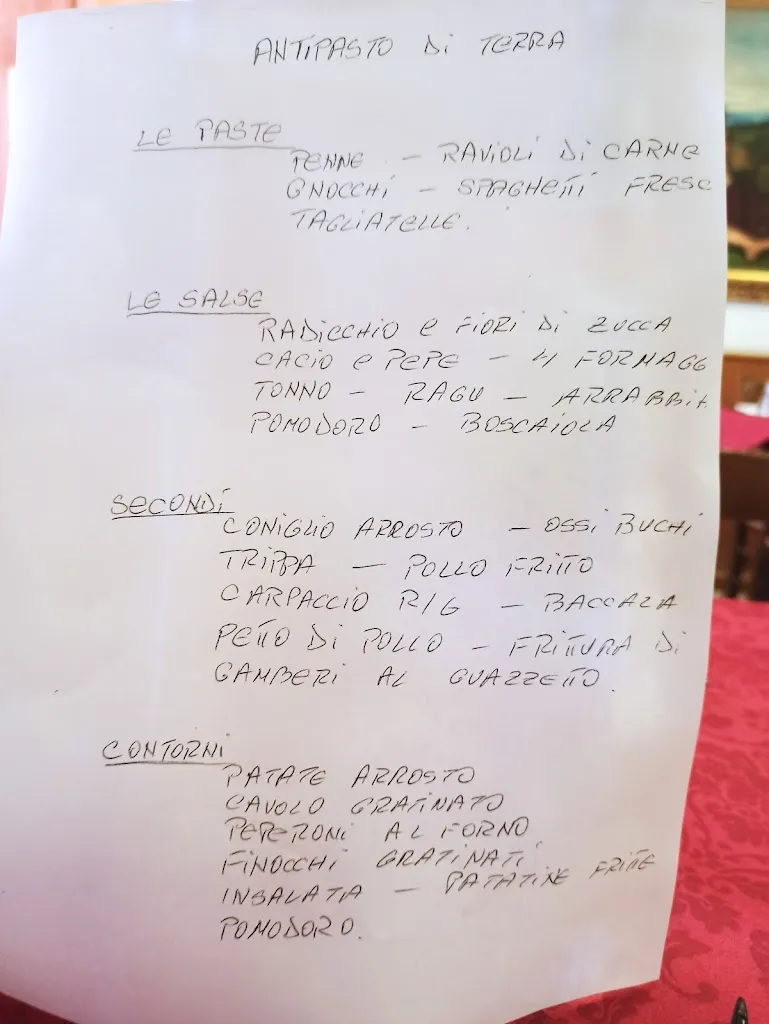 ANTIPASTO Di TERRA
LE PASTE
PENNE - RAVIOLI Di CARNE
GNOCCHI - SPAGHETTI FRESC
TAGLIATELLE.
LE SALSE
RADICCHIO e FIORI Di ZUCCA
CACIO e PEPE - 4 FORMAGG
TONNO - RAGU - ARRABBIA
POMODORO - BOSCAIOLA
SECONDI
CONIGLIO ARROSTO - OSSI BUCHI
TRIPPA - POLLO FRITTO
CARPACCIO R/G - BACCALA
PETTO Di POLLO - FRITTURA Di
GAMBERI AL GUAZZETTO.
CONTORNI
PATATE ARROSTO
CAVOLO GRATINATO
PEPERONI AL FORNO
FINOCCHI GRATINATI
INSALATA - PATATINE FRITTE
POMODORO.